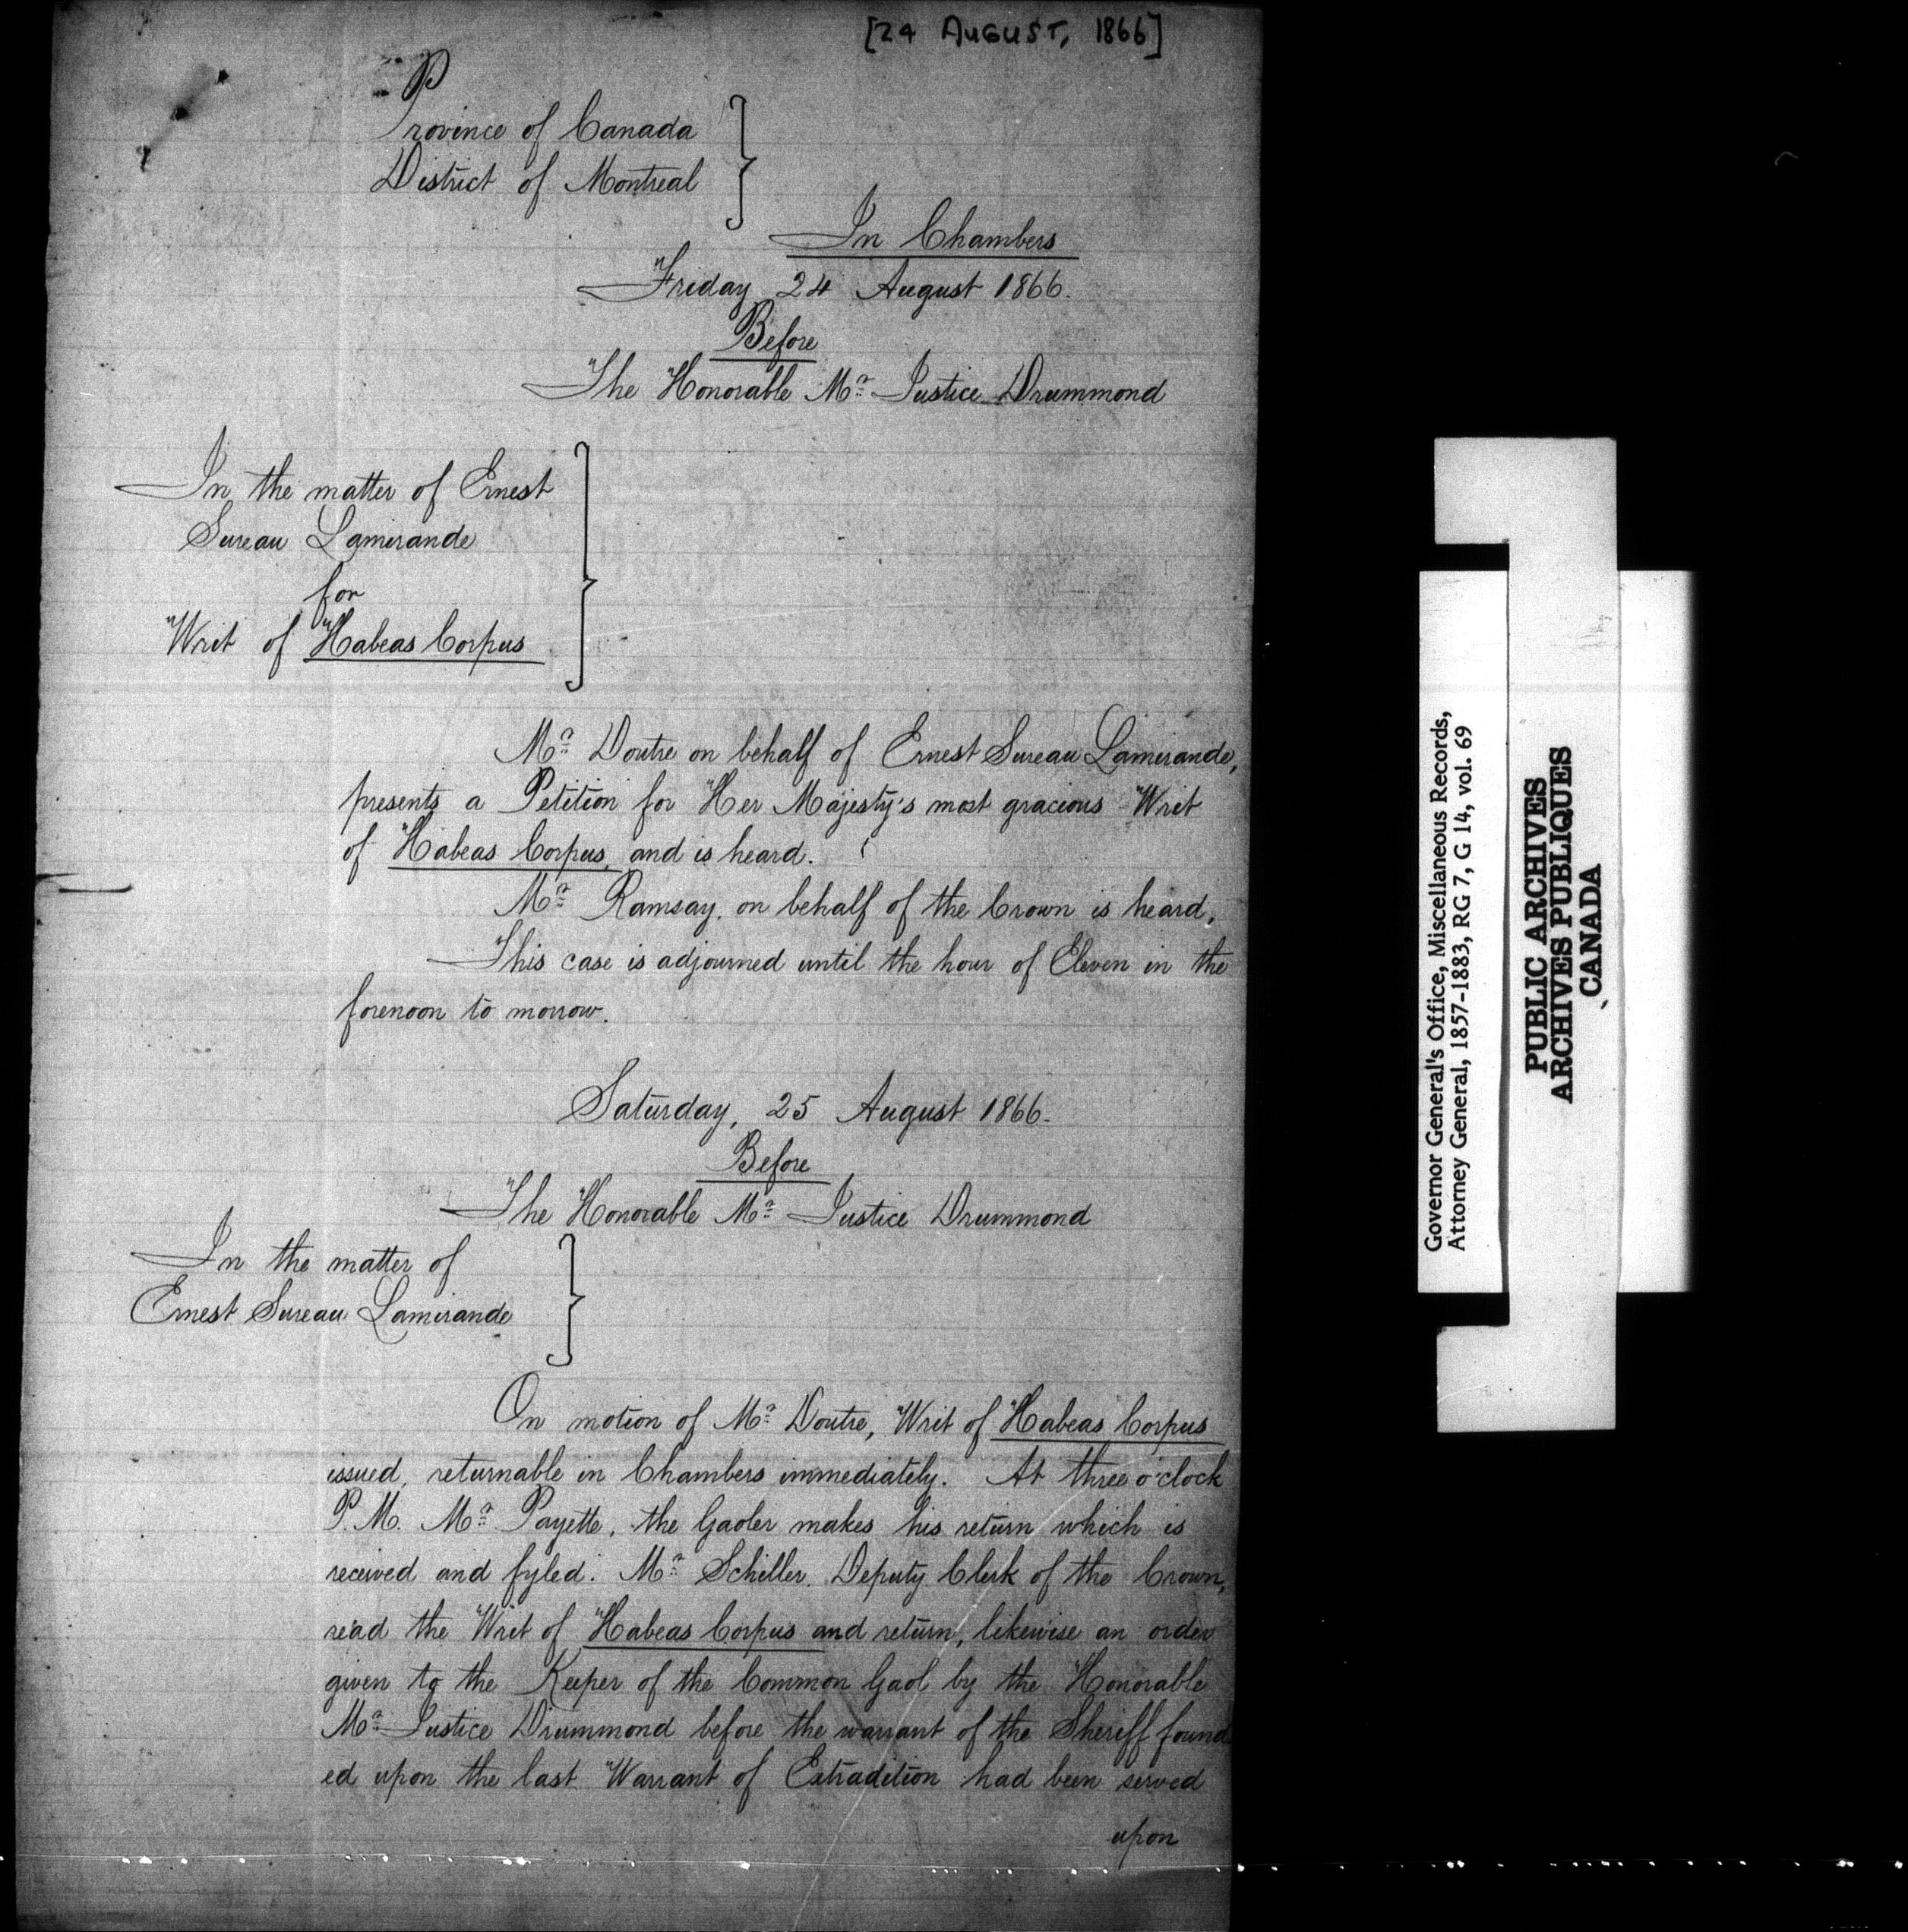 [24 AUGUST, 1866]
Province of Canada
District of Montreal
In Chambers
Friday 24 August 1866.
Before
The Honorable Mr. Justice Drummond
In the matter of Ernest
Sureau Lamirande
for
Writ of Habeas Corpus
Mr. Doutre on behalf of Ernest Sureau Lamirande,
presents a Petition for Her Majesty's most gracious Writ
of Habeas Corpus, and is heard.
Mr. Ramsay, on behalf of the Crown is heard.
This case is adjourned until the hour of Eleven in the
forenoon to morrow.
Saturday, 25 August 1866.
Before
The Honorable Mr. Justice Drummond
In the matter of
Ernest Sureau Lamirande
On motion of Mr. Doutre, Writ of Habeas Corpus
issued, returnable in Chambers immediately. At three o'clock
P.M. Mr. Payette, the Gaoler makes his return which is
received and fyled. Mr. Schiller, Deputy Clerk of the Crown,
read the Writ of Habeas Corpus and return, likewise an order
given to the Keeper of the Common Gaol by the Honorable
Mr. Justice Drummond before the warrant of the Sheriff found
ed upon the last Warrant of Extradition had been served
upon
Governor General's Office, Miscellaneous Records,
Attorney General, 1857-1883, RG 7, G 14, vol. 69
PUBLIC ARCHIVES
ARCHIVES PUBLIQUES
CANADA